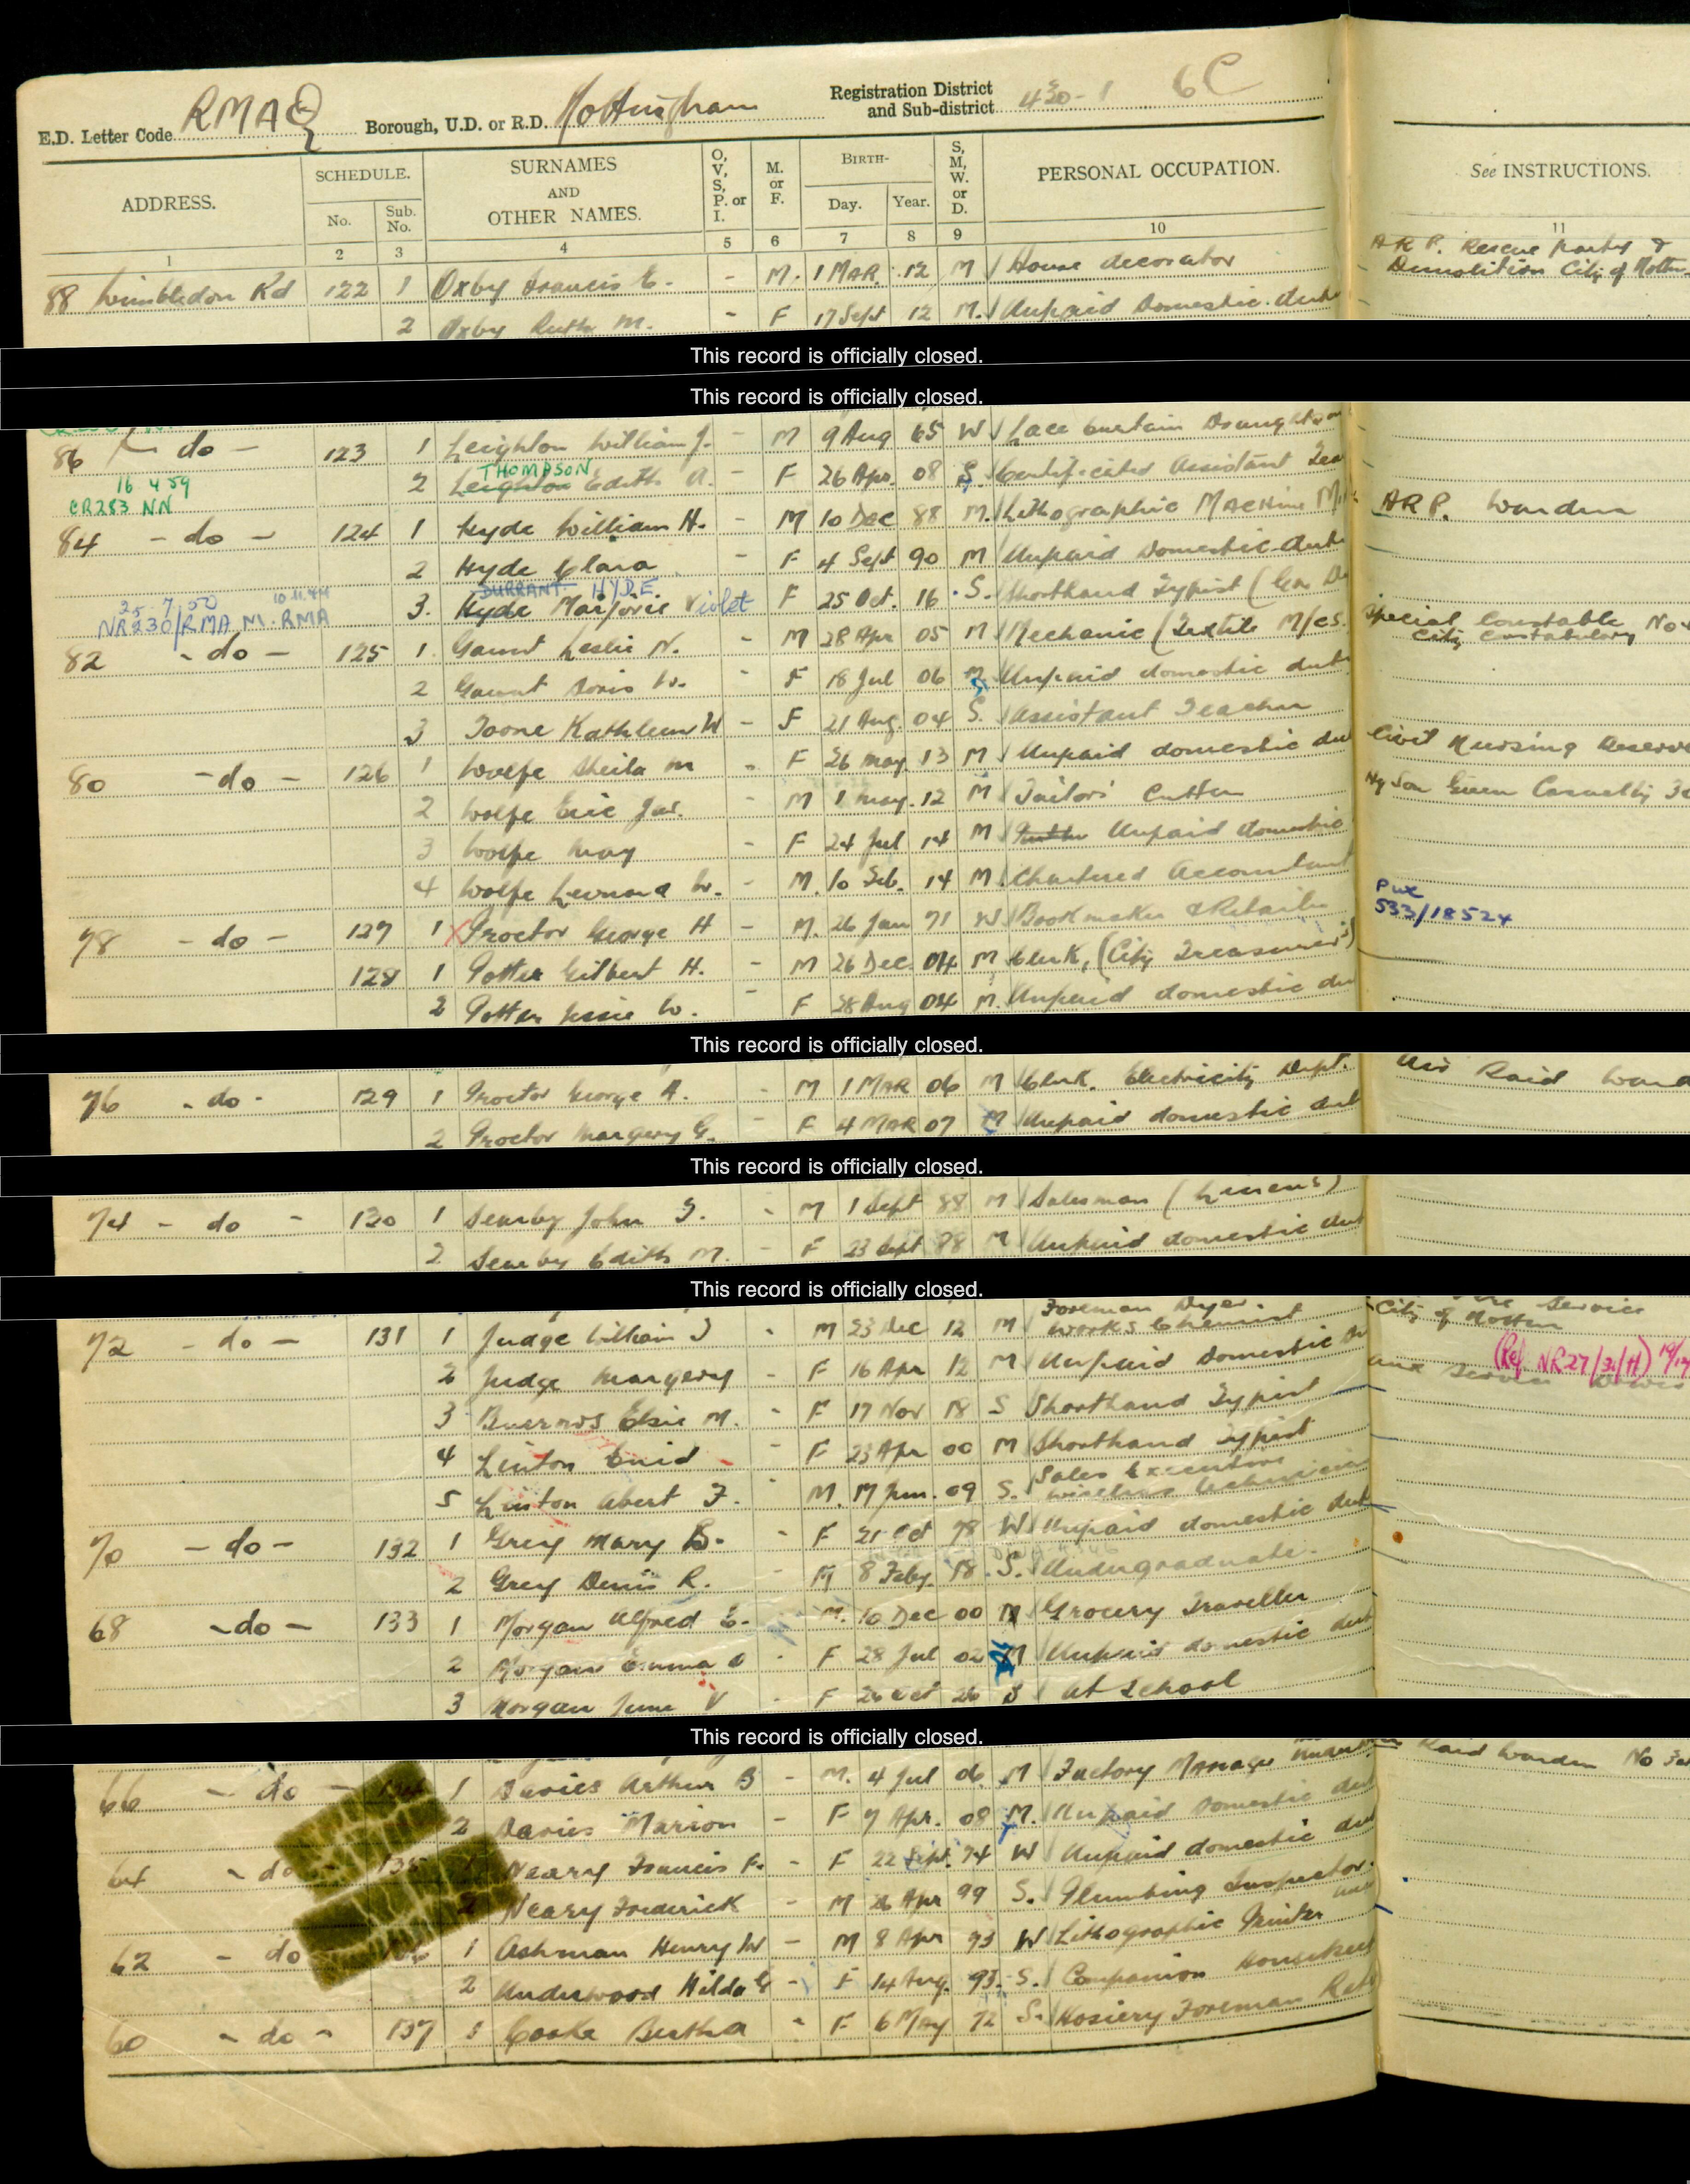 E.D. Letter Code RMAQ Borough, U.D. or R.D. Nottingham Registration District and Sub-district 430-1 6C
ADDRESS. SCHEDULE. No. Sub. No. SURNAMES AND OTHER NAMES. O, V, S, P. or I. M. or F. BIRTH- Day. Year. S, M, W. or D. PERSONAL OCCUPATION. See INSTRUCTIONS.
1 2 3 4 5 6 7 8 9 10 11
A R P. Rescue Party &
88 Wimbledon Rd 122 1 Oxby Francis E. - M. 1 MAR. 12 M House decorator Demolition City of Nottm
2 Oxby Ruth M. - F 17 Sept 12 M. Unpaid Domestic dut
This record is officially closed.
This record is officially closed.
86 - do - 123 1 Leighton William J. - M 9 Aug 65 W Lace Curtain Draughtsm
THOMPSON
16 4 59 2 Leighton Edith A. - F 26 Apr. 08 S. Certificated Assistant Tea
CR283 NN
84 - do - 124 1 Hyde William H. - M 10 Dec 88 M. Lithographic Machine M ARP. Warden
2 Hyde Clara - F 4 Sept 90 M Unpaid Domestic dut
DURRANT HYDE
3. Hyde Marjorie Violet F 25 Oct. 16 S. Shorthand Typist (
25 7/50
NR230/RMA M. RMA
82 - do - 125 1. Gaunt Leslie N. - M 28 Apr 05 M Mechanic (Textile M/cs. Special Constable No
City Constabulary
2 Gaunt Doris W. - F 18 Jul 06 M Unpaid domestic dut
3 Toone Kathleen W - F 21 Aug. 04 S. Assistant Teacher
80 - do - 126 1 Wolfe Sheila M - F 26 May 13 M Unpaid domestic du Civil Nursing Reserve
2 Wolfe Eric Jas. - M 1 May. 12 M Tailors Cutter
3 Wolfe May - F 24 Jul 14 M Unpaid domestic
4 Wolfe Leonard W. - M. 10 Feb. 14 M. Chartered Accountant
PWX
533/18524
78 - do - 127 1 Proctor George H - M. 26 Jan 71 W Bookmaker
128 1 Potter Gilbert H. - M 26 Dec 04 M Clerk, (City Treasurer's)
2 Potter Jessie W. - F 28 Aug 04 M. Unpaid domestic du
This record is officially closed.
76 - do - 129 1 Proctor George A. - M 1 MAR 06 M Clerk. Electricity Dept. Air Raid Ward
2 Proctor Margery G. - F 4 MAR 07 M Unpaid domestic dut
This record is officially closed.
74 - do - 130 1 Searby John G. - M 1 Sept 88 M Salesman (Linens)
2 Searby Edith M. - F 23 Sept 88 M Unpaid domestic dut
This record is officially closed.
Foreman Dyer. Service
72 - do - 131 1 Judge William J - M 23 Dec 12 M Works Chemist City of Nottm
2 Judge Margery - F 16 Apr 12 M Unpaid Domestic Du (Ref. NR27/31/H)
3 Burrows Elsie M. - F 17 Nov 18 S Shorthand Typist
4 Linton Enid - F 23 Apr 00 M Shorthand Typist
Sales Executive
5 Linton Abert F. - M. 17 Jun. 09 S. Wireless Technician
70 - do - 132 1 Grey Mary B. - F 21 Oct 78 W Unpaid domestic dut
2 Grey Denis R. - M 8 Feby. 18 S. Undergraduate.
68 - do - 133 1 Morgan Alfred E. M. 10 Dec 00 M Grocery Traveller
2 Morgan Emma - F 28 Jul 02 M Unpaid domestic dut
3 Morgan June V - F 26 Oct 26 S At School
This record is officially closed.
66 - do - 134 1 Davies Arthur B - M. 4 Jul 06 M Factory Manager Raid Warden No
2 Davies Marion - F 7 Apr. 08 M. Unpaid domestic dut
64 - do 135 Neary Francis F. - F 22 Sept. 74 W Unpaid domestic dut
2 Neary Frederick - M 26 Apr 99 S. Plumbing Inspector.
62 - do 1 Ashman Henry W - M 8 Apr 93 W Lithographic Printer
2 Underwood Hilda G - F 14 Aug. 93. S. Companion Housekeep
60 - do - 137 1 Cooke Bertha - F 6 May 72 S. Hosiery Foreman Ret